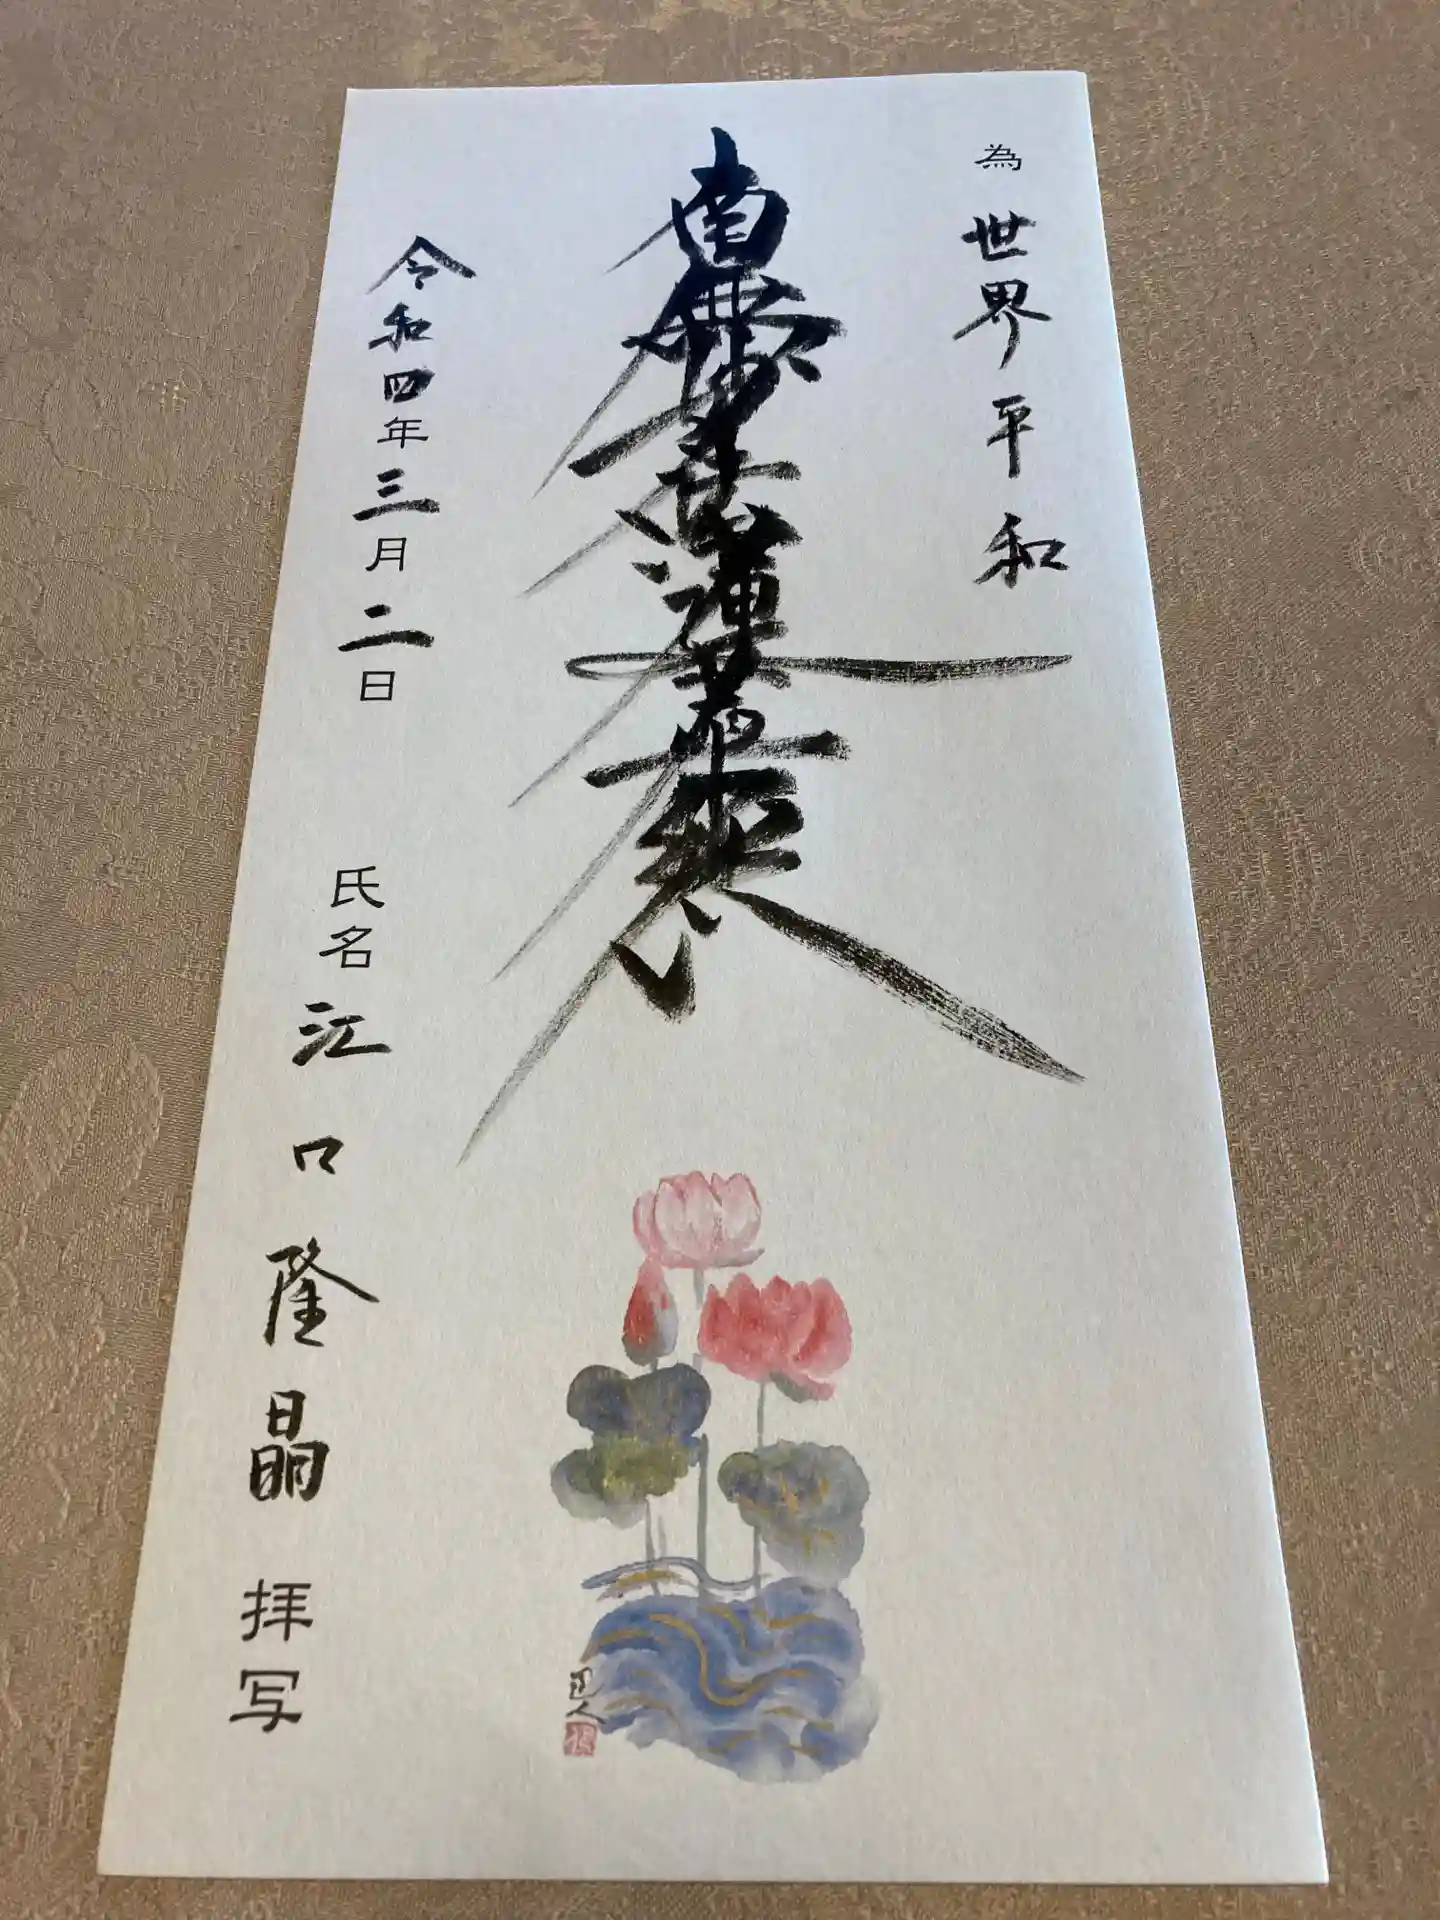 為 世界平和
南無妙法蓮華經
令和四年三月二日
氏名 江口隆晶 拝写